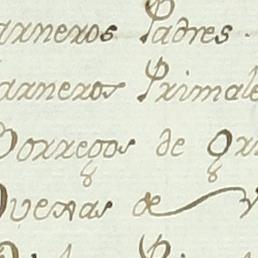 arneros Padres.
arneros Primale
Borregos de Or
Ovexas de V